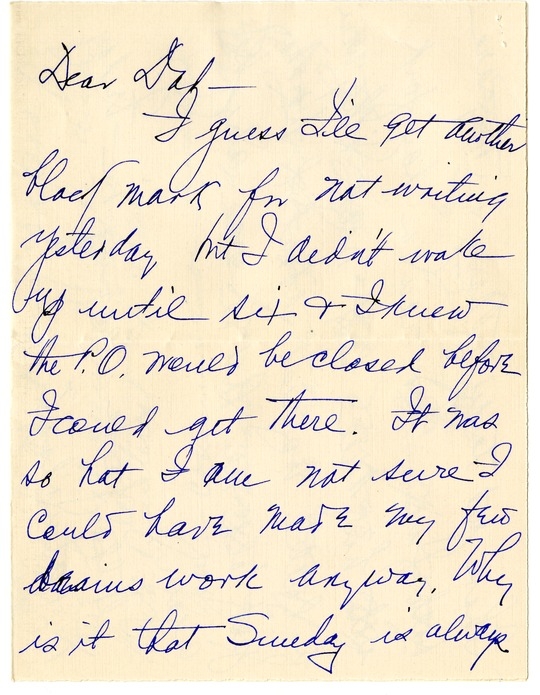 Dear Daf—
I guess I'll get another
black mark for not writing
yesterday but I didn't wake
up until six & I knew
the P.O. would be closed before
I could get there. It was
so hot I am not sure I
could have made my few
brains work anyway. Why
is it that Sunday is always